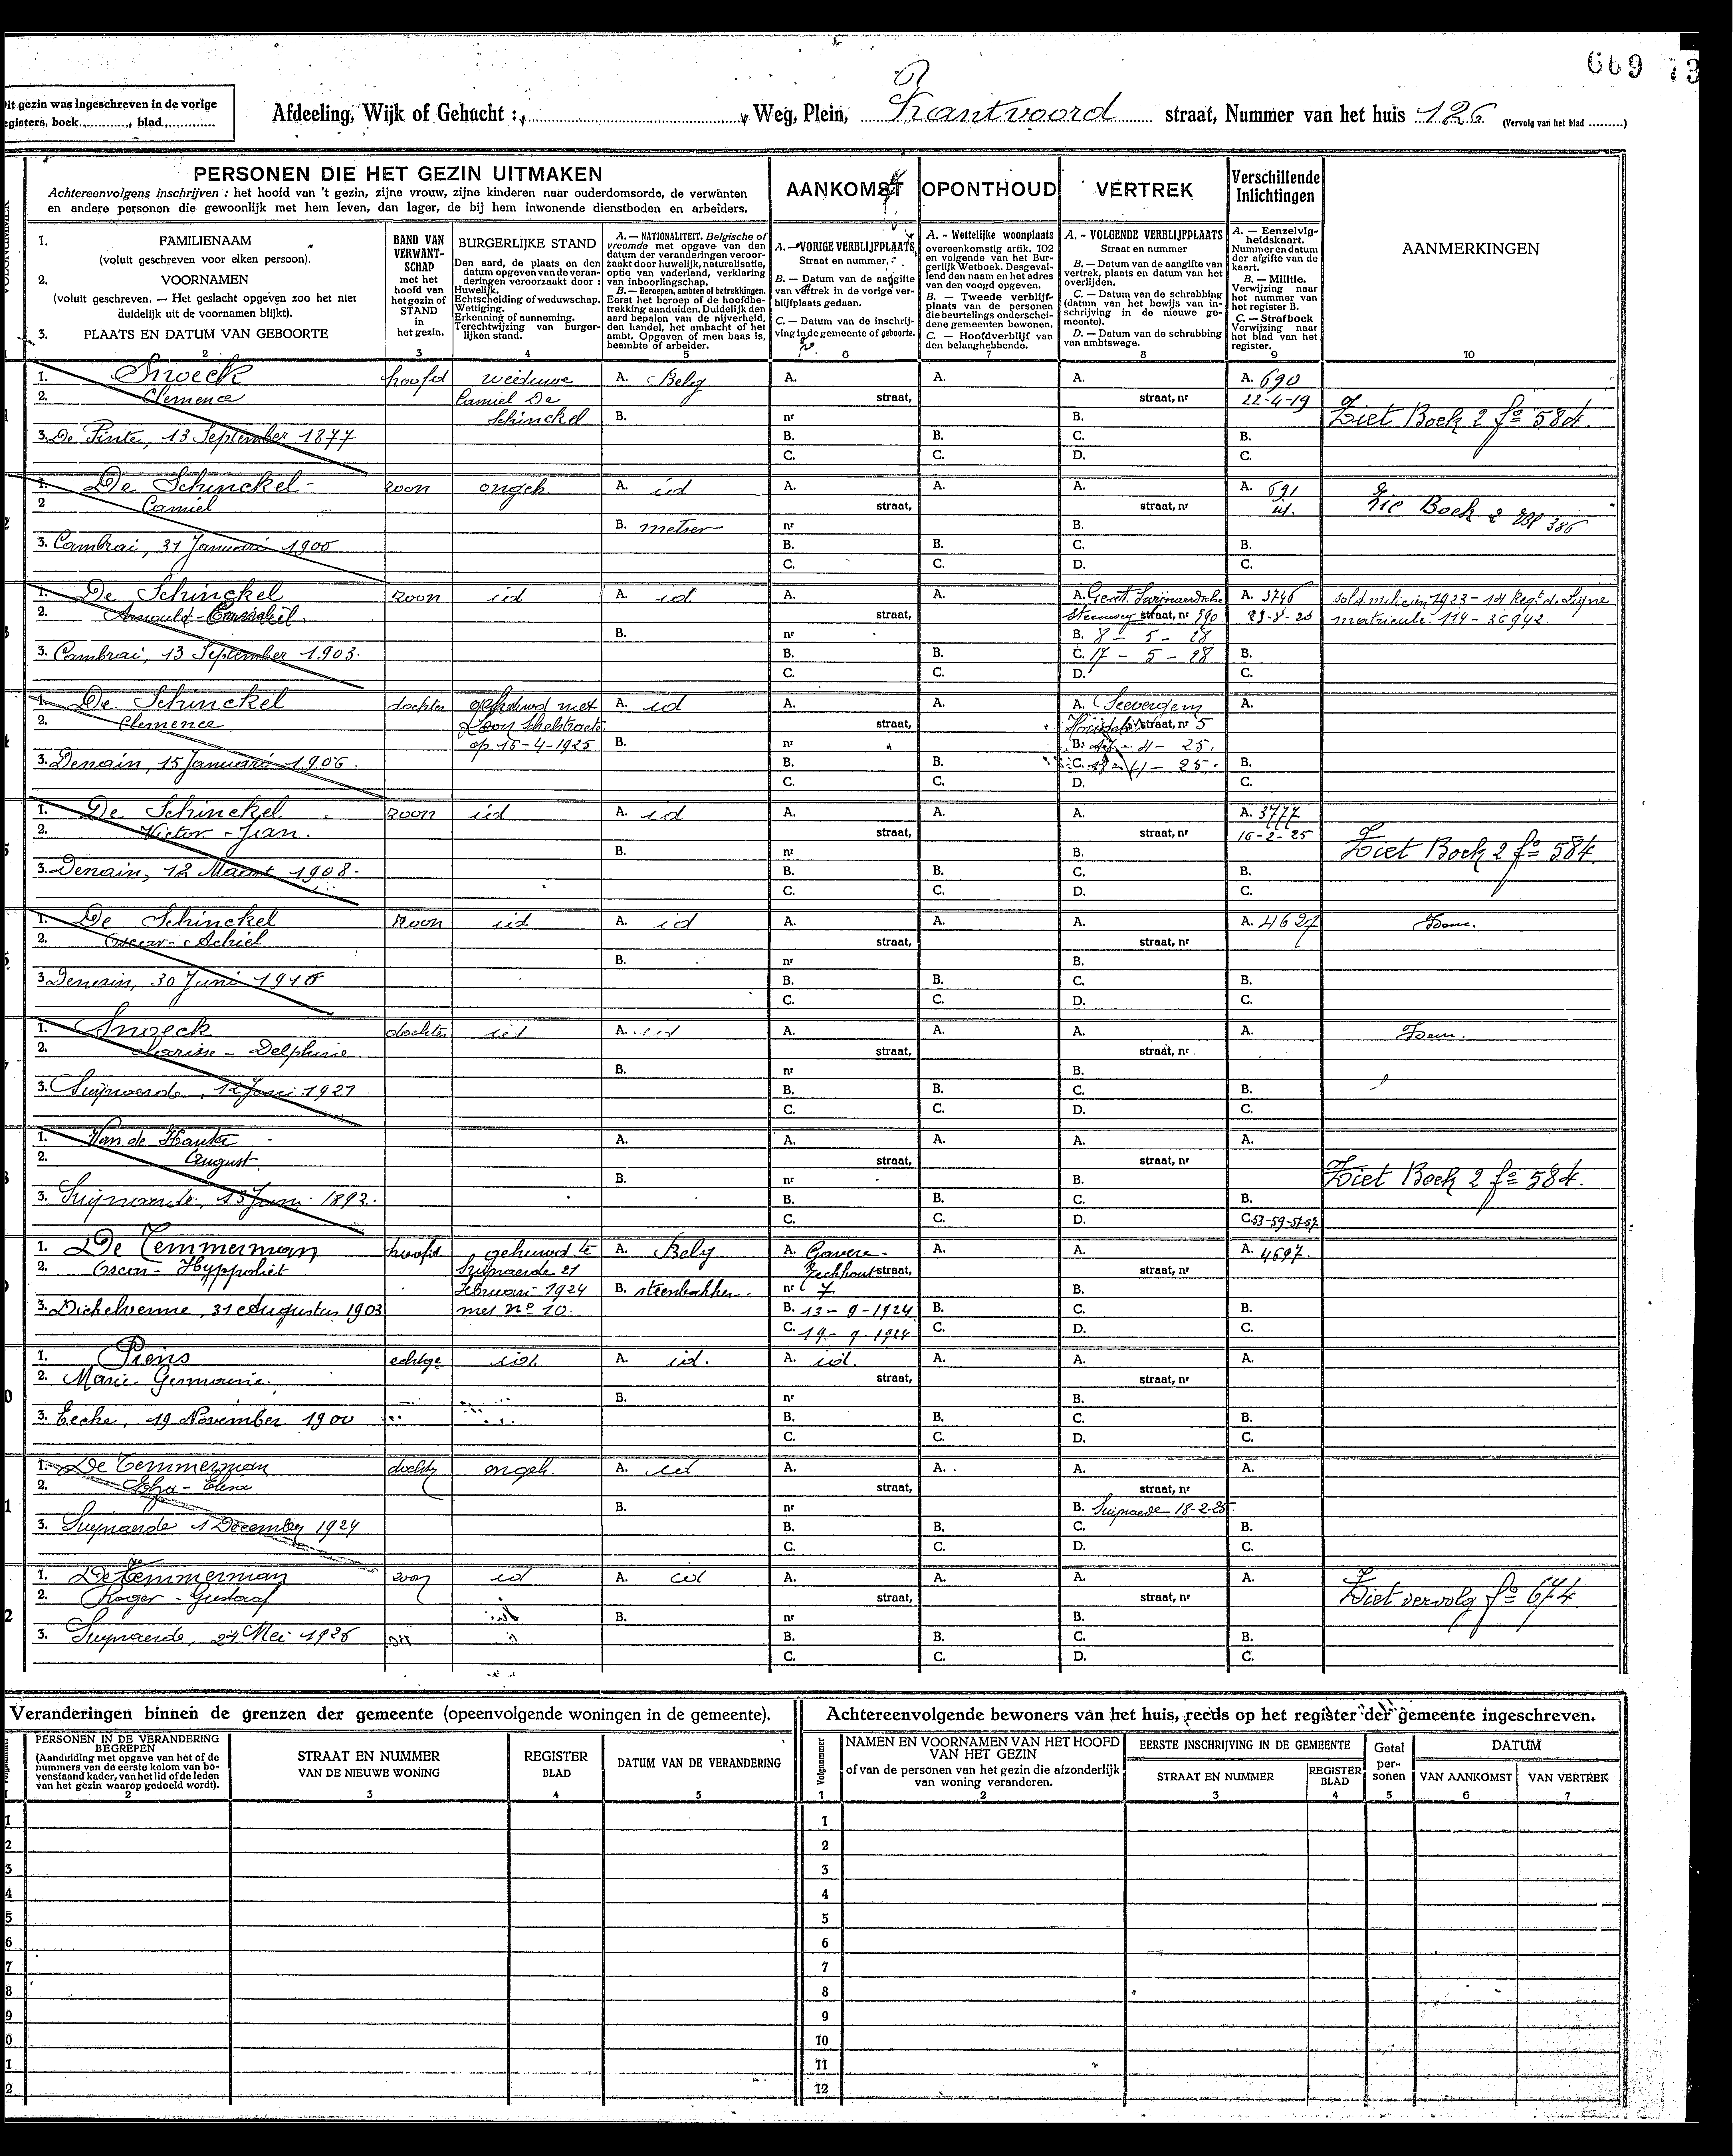 669 73
Dit gezin was ingeschreven in de vorige
registers, boek............, blad..............
Afdeeling, Wijk of Gehucht : Weg, Plein, Zantvoord straat, Nummer van het huis 126 (Vervolg van het blad .........)
PERSONEN DIE HET GEZIN UITMAKEN
Achtereenvolgens inschrijven : het hoofd van 't gezin, zijne vrouw, zijne kinderen naar ouderdomsorde, de verwanten
en andere personen die gewoonlijk met hem leven, dan lager, de bij hem inwonende dienstboden en arbeiders.
AANKOMST OPONTHOUD VERTREK Verschillende Inlichtingen
1. FAMILIENAAM
(voluit geschreven voor elken persoon).
2. VOORNAMEN
(voluit geschreven. — Het geslacht opgeven zoo het niet
duidelijk uit de voornamen blijkt).
3. PLAATS EN DATUM VAN GEBOORTE
BAND VAN
VERWANT-
SCHAP
met het
hoofd van
het gezin of
STAND
in
het gezin.
BURGERLIJKE STAND
Den aard, de plaats en den
datum opgeven van de veran-
deringen veroorzaakt door :
Huwelijk.
Echtscheiding of weduwschap.
Wettiging.
Erkenning of aanneming.
Terechtwijzing van burger-
lijken stand.
A. — NATIONALITEIT. Belgische of
vreemde met opgave van den
datum der veranderingen veroor-
zaakt door huwelijk, naturalisatie,
optie van vaderland, verklaring
van inboorlingschap.
B. — Beroepen, ambten of betrekkingen.
Eerst het beroep of de hoofdbe-
trekking aanduiden. Duidelijk den
aard bepalen van de nijverheid,
den handel, het ambacht of het
ambt. Opgeven of men baas is,
beambte of arbeider.
A. — VORIGE VERBLIJFPLAATS
Straat en nummer.
B. — Datum van de aangifte
van vertrek in de vorige ver-
blijfplaats gedaan.
C. — Datum van de inschrij-
ving in de gemeente of geboorte.
A. - Wettelijke woonplaats
overeenkomstig artik. 102
en volgende van het Bur-
gerlijk Wetboek. Desgeval-
lend den naam en het adres
van den voogd opgeven.
B. — Tweede verblijf-
plaats van de personen
die beurtelings onderschei-
dene gemeenten bewonen.
C. — Hoofdverblijf van
den belanghebbende.
A. - VOLGENDE VERBLIJFPLAATS
Straat en nummer
B. — Datum van de aangifte van
vertrek, plaats en datum van het
overlijden.
C. — Datum van de schrabbing
(datum van het bewijs van in-
schrijving in de nieuwe ge-
meente).
D. — Datum van de schrabbing
van ambtswege.
A. — Eenzelvig-
heidskaart.
Nummer en datum
der afgifte van de
kaart.
B. — Militie.
Verwijzing naar
het nummer van
het register B.
C. — Strafboek
Verwijzing naar
het blad van het
register.
AANMERKINGEN
2 3 4 5 6 7 8 9 10
1. Snoeck hoofd weduwe A. Belg A. A. A. A. 690
2. Clemence Camiel De straat, straat, nr 22-4-19
Schinckel B. nr B. Ziet Boek 2 fo 584.
3. De Pinte, 13 September 1877 B. B. C. B.
C. C. D. C.
1. De Schinckel zoon ongeh. A. id A. A. A. A. 691
2 Camiel straat, straat, nr id. Zie Boek 2 386
B. metser nr B.
3. Cambrai, 31 Januari 1900 B. B. C. B.
C. C. D. C.
1. De Schinckel zoon id A. id A. A. A. Gent A. 3746 sold. milicien 1923 - 14 Regt. de Ligne
2. Arnould - Camiël straat, steenweg straat, nr 390 matricule 114 - 36942.
B. nr B. 8 - 5 - 28
3. Cambrai, 13 September 1903. B. B. C. 17 - 5 - 28 B.
C. C. D.
1. De Schinckel dochter gehuwd met A. id A. A. A. Seevergem A.
2. Clemence Leon Schelstraete straat, straat, nr 5
op 16-4-1925 B. nr B. 25.
3. Denain, 15 Januari 1906. B. B. C. 25. B.
C. C. D.
1. De Schinckel zoon id A. id A. A. A. A. 3777
2. Victor - Jean. straat, straat, nr 16-2-25
B. nr B. Ziet Boek 2 fo 584.
3. Denain, 12 Maart 1908. B. B. C. B.
C. C. D. C.
1. De Schinckel zoon id A. id A. A. A. A. 4627 Idem.
2. Oscar - Achiel straat, straat, nr
B. nr B.
3 Denain, 30 Juni 1910 B. B. C. B.
C. C. D. C.
1. Snoeck dochter id A. id A. A. A. A. Idem.
2. Delphine straat, straat, nr
B. nr B.
3. Suijnaerde, 12 Juni 1921 B. B. C. B.
C. C. D. C.
1. Van de A. A. A. A. A.
2. August straat, straat, nr
B. nr B. Ziet Boek 2 fo 584.
3. Suijnaerde, 13 Juni 1893. B. B. C. B.
C. C. D. C. 53-59-57-57
1. De Temmerman hoofd gehuwd te A. Belg A. Gavere A. A. A. 4697.
2. Oscar - Hyppoliet Suijnaerde 21 straat, straat, nr
februari 1924 B. steenbakker nr 7 B.
3. Dickelvenne, 31 Augustus 1903 met no 10. B. 13 - 9 - 1924 B. C. B.
C. 19 - 9 - 1924 C. D.
1. Piens echtge id. A. id. A. id. A. A. A.
2. Marie Germaine straat, straat, nr
B. nr B.
3. Eecke, 19 November 1900 B. B. C. B.
C. C. D. C.
1. De Temmerman dochter ongeh. A. id A. A. A. A.
2. Elza - Elena straat, straat, nr
B. nr B. Suijnaerde 18-2-25.
3. Suijnaerde 1 December 1924 B. B. C. B.
C. C. D. C.
1. De Temmerman zoon id A. id A. A. A. A.
2. Roger - Gustaaf straat, straat, nr Ziet vervolg fo 674
B. nr B.
3. Suijnaerde, 27 Mei 1926 B. B. C. B.
C. C. D. C.
Veranderingen binnen de grenzen der gemeente (opeenvolgende woningen in de gemeente).
PERSONEN IN DE VERANDERING
BEGREPEN
(Aanduiding met opgave van het of de
nummers van de eerste kolom van bo-
venstaand kader, van het lid of de leden
van het gezin waarop gedoeld wordt).
STRAAT EN NUMMER
VAN DE NIEUWE WONING
REGISTER
BLAD
DATUM VAN DE VERANDERING
2 3 4 5
Achtereenvolgende bewoners van het huis, reeds op het register der gemeente ingeschreven.
Volgnummer
NAMEN EN VOORNAMEN VAN HET HOOFD
VAN HET GEZIN
of van de personen van het gezin die afzonderlijk
van woning veranderen.
EERSTE INSCHRIJVING IN DE GEMEENTE
STRAAT EN NUMMER
REGISTER
BLAD
Getal
per-
sonen
DATUM
VAN AANKOMST VAN VERTREK
1 2 3 4 5 6 7
1 1
2 2
3 3
4 4
5 5
6 6
7 7
8 8
9 9
0 10
1 11
2 12